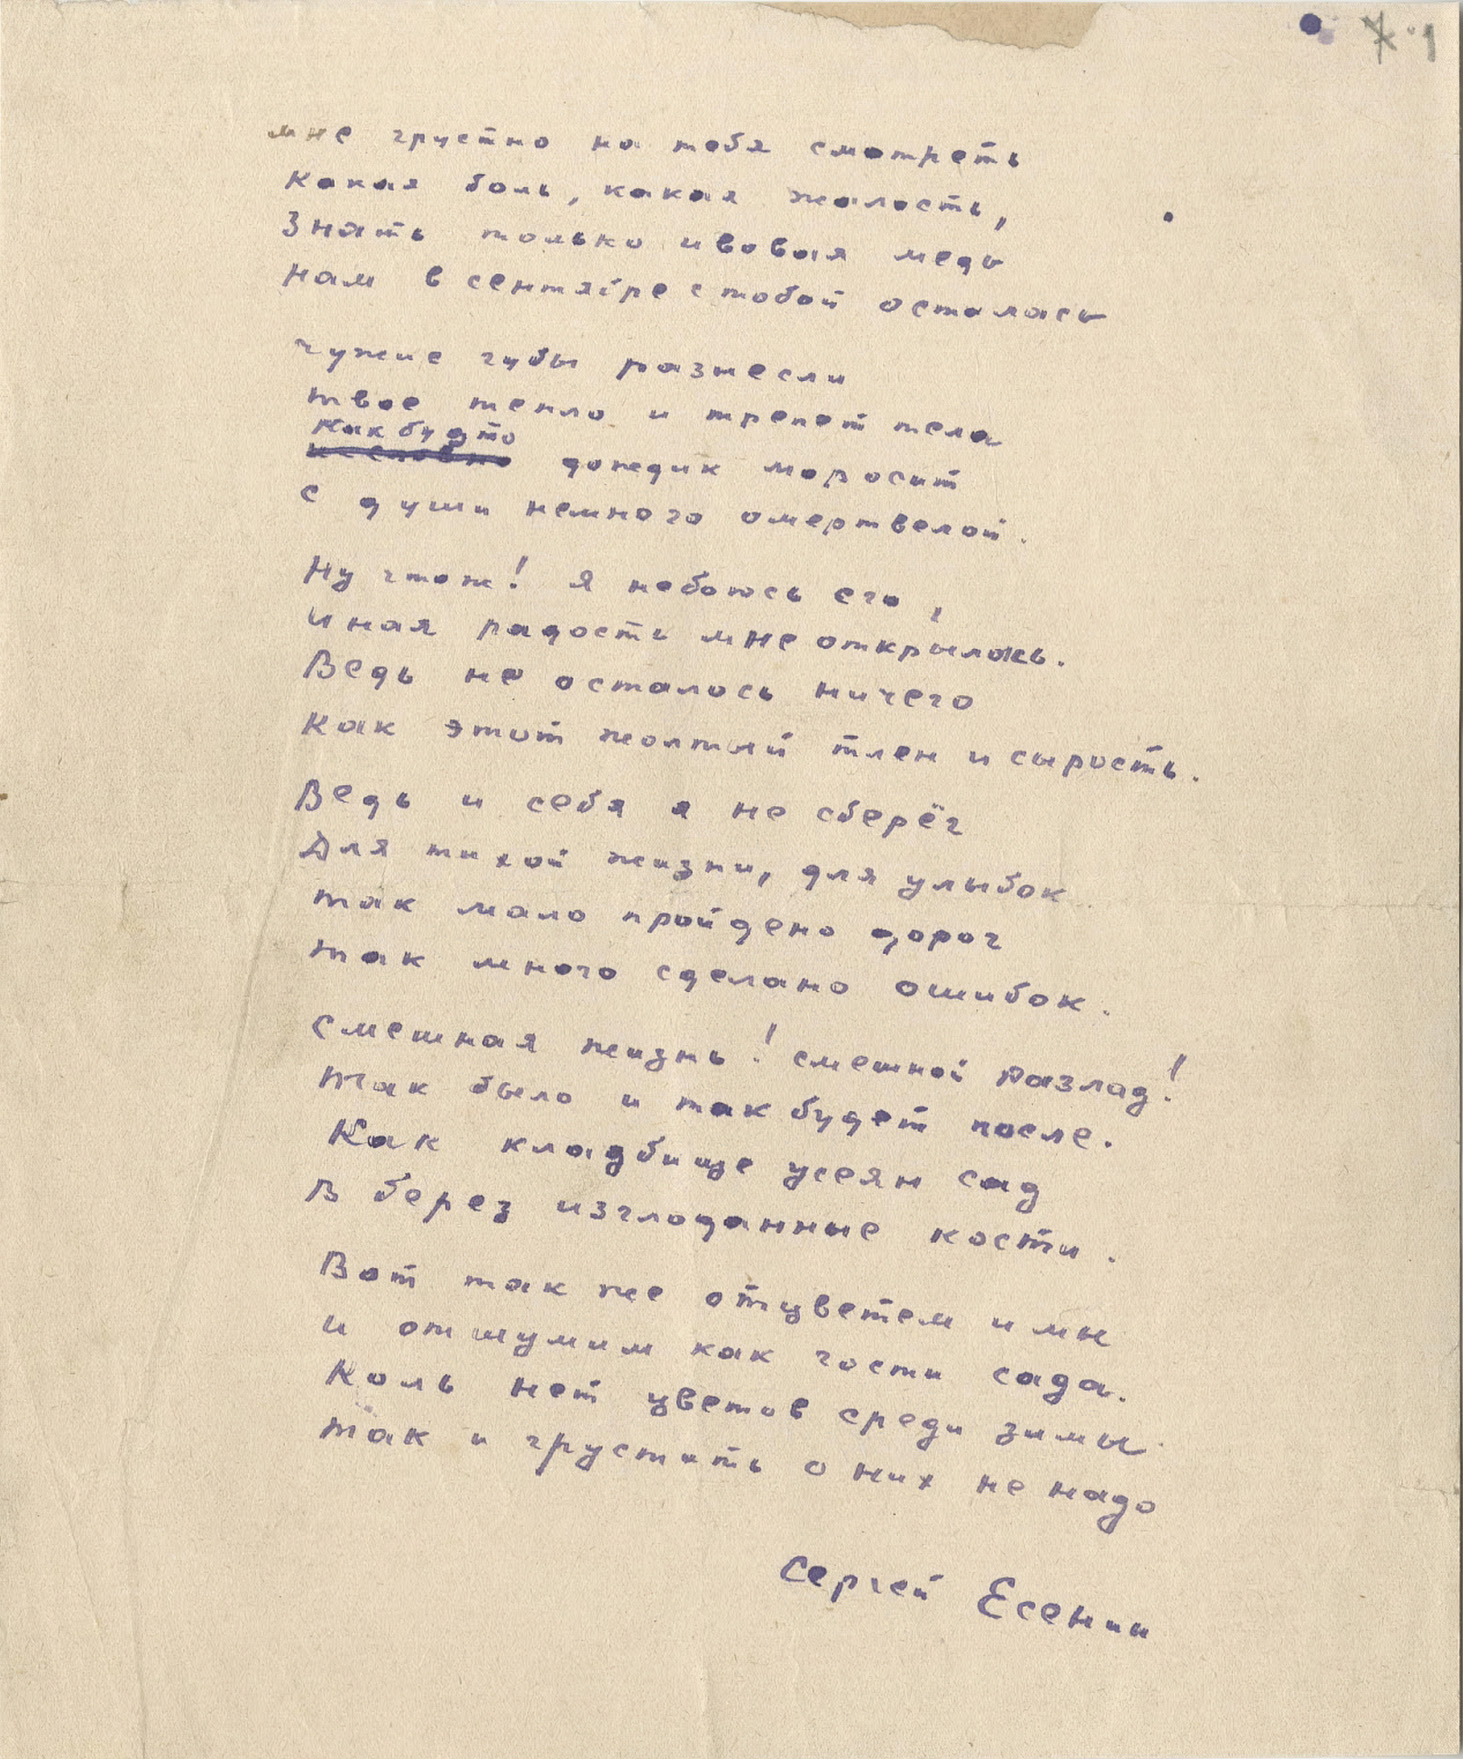 1
мне грустно на тебя смотреть
Какая боль, какая жалость,
Знать только ивовая медь
Нам в сентябре с тобой осталась
чужие губы разнесли
твое тепло и трепет тела
как будто
дождик моросит
с души немного омертвелой.
Ну чтож! я небоюсь его,
Иная радость мне открылась.
Ведь не осталось ничего
Как этот жолтый тлен и сырость.
Ведь и себя я не сберёг
Для тихой жизни, для улыбок
так мало пройдено дорог
так много сделано ошибок.
Смешная жизнь! смешной разлад!
Так было и так будет после.
Как кладбище усеян сад
В берез изглоданные кости.
Вот так же отцветем и мы
и отшумим как гости сада.
Коль нет цветов среди зимы
так и грустить о них не надо
Сергей Есенин